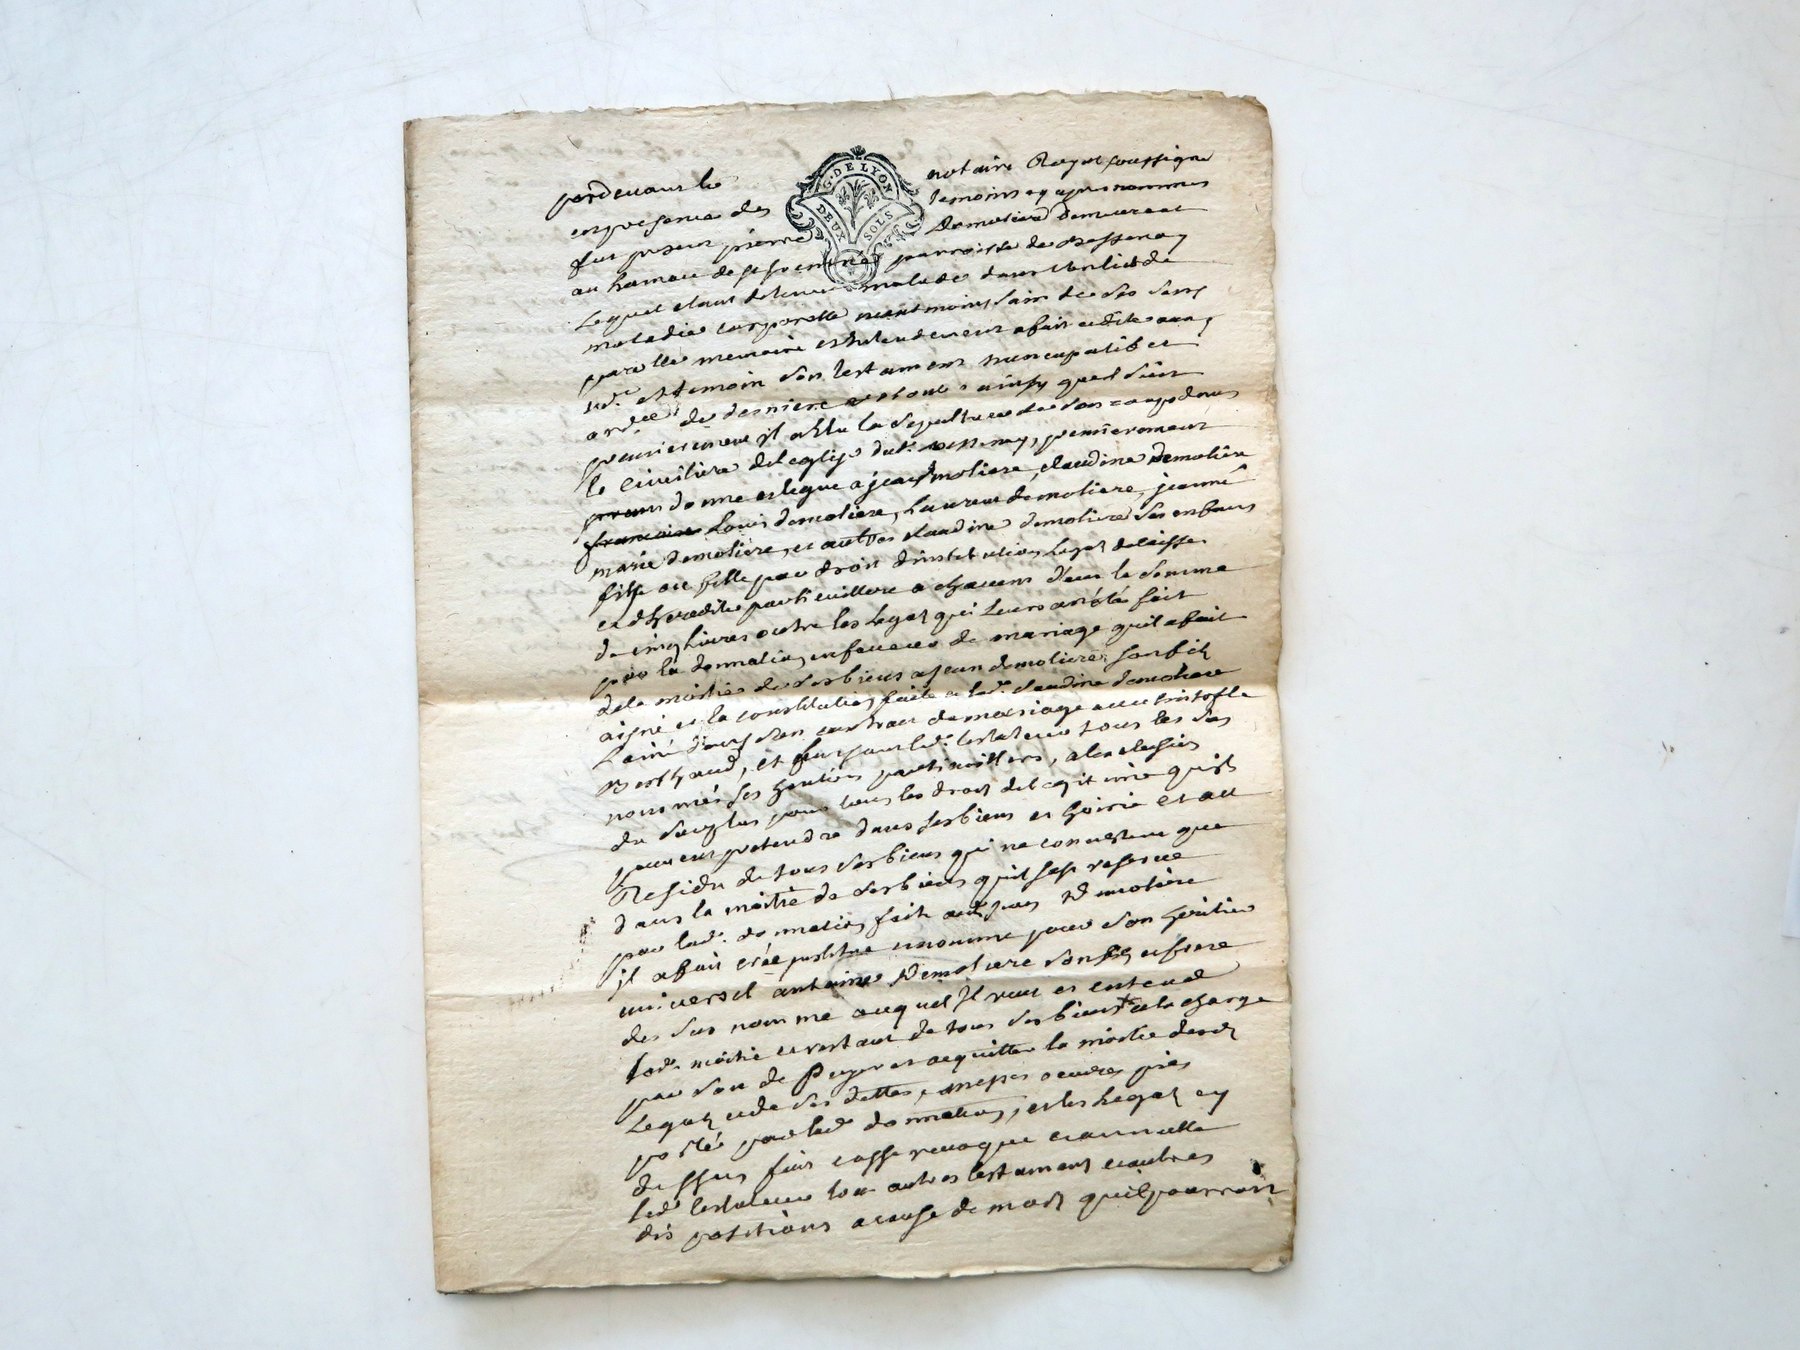 G. DE LYON
DEUX SOLS
pardevant le notaire Royal soussigne
en presence des temoins cy apres nommes
fut present pierre Demoliere demeurant
au hameau de parroisse de Bessenay
Lequel etant detenu malade dans un lict de
maladie corporelle neantmoins sain de ses sens
parolle memoire et entendement a fait et dicte aux
nd.re et temoin son testament nuncupatif et
ord.ce de derniere volonté ainsy quil suit
premierement il a Elu la sepulture de son corps dans
le Cimetiere de leglise dud. Bessenay, premierement
donne et legue a jean Demoliere, claudine Demoliere
francoise Louis demoliere, Laurent demoliere, jeanne
marie demoliere, et autre claudine demoliere ses enfans
fils et fille par droit dinstitution Legat delaisse
et dheredite particulliere a chacuns d'eux la somme
de cinq Livres outre les Legat qui Leurs a été fait
par la donnation en faveur de mariage quil a fait
de la moitié de ses biens a jean demoliere son fils
aisné et la constitution faite a lad. claudine demoliere
L'ainé dans son contract de mariage avec cristofle
Berthaud, et led. testateur tous les sus
nommés ses heritiers particulliers,
du surplus pour tous les droits de legitime quils
peuvent pretendre dans ses biens et hoirie et au
Residu de tous ses biens qui ne consistent que
dans la moitié de ses biens quil sest reservé
par lad. donnation faite aud. jean Demoliere
il a fait créé institue et nomme pour son heritier
universel antoine Demoliere son fils et frere
des sus nommé auquel Il veut et entend
lad. moitié et restant de tous ses biens a la charge
par son de Payer et acquitter la moitié desd.
Legats et de ses dettes, messes oeuvres pies
porté par lad. donnation, et les Legats cy
dessus fait casse revoque et annulle
led. testateur tout autres testament et autres
dispositions a cause de mort quil pourroit